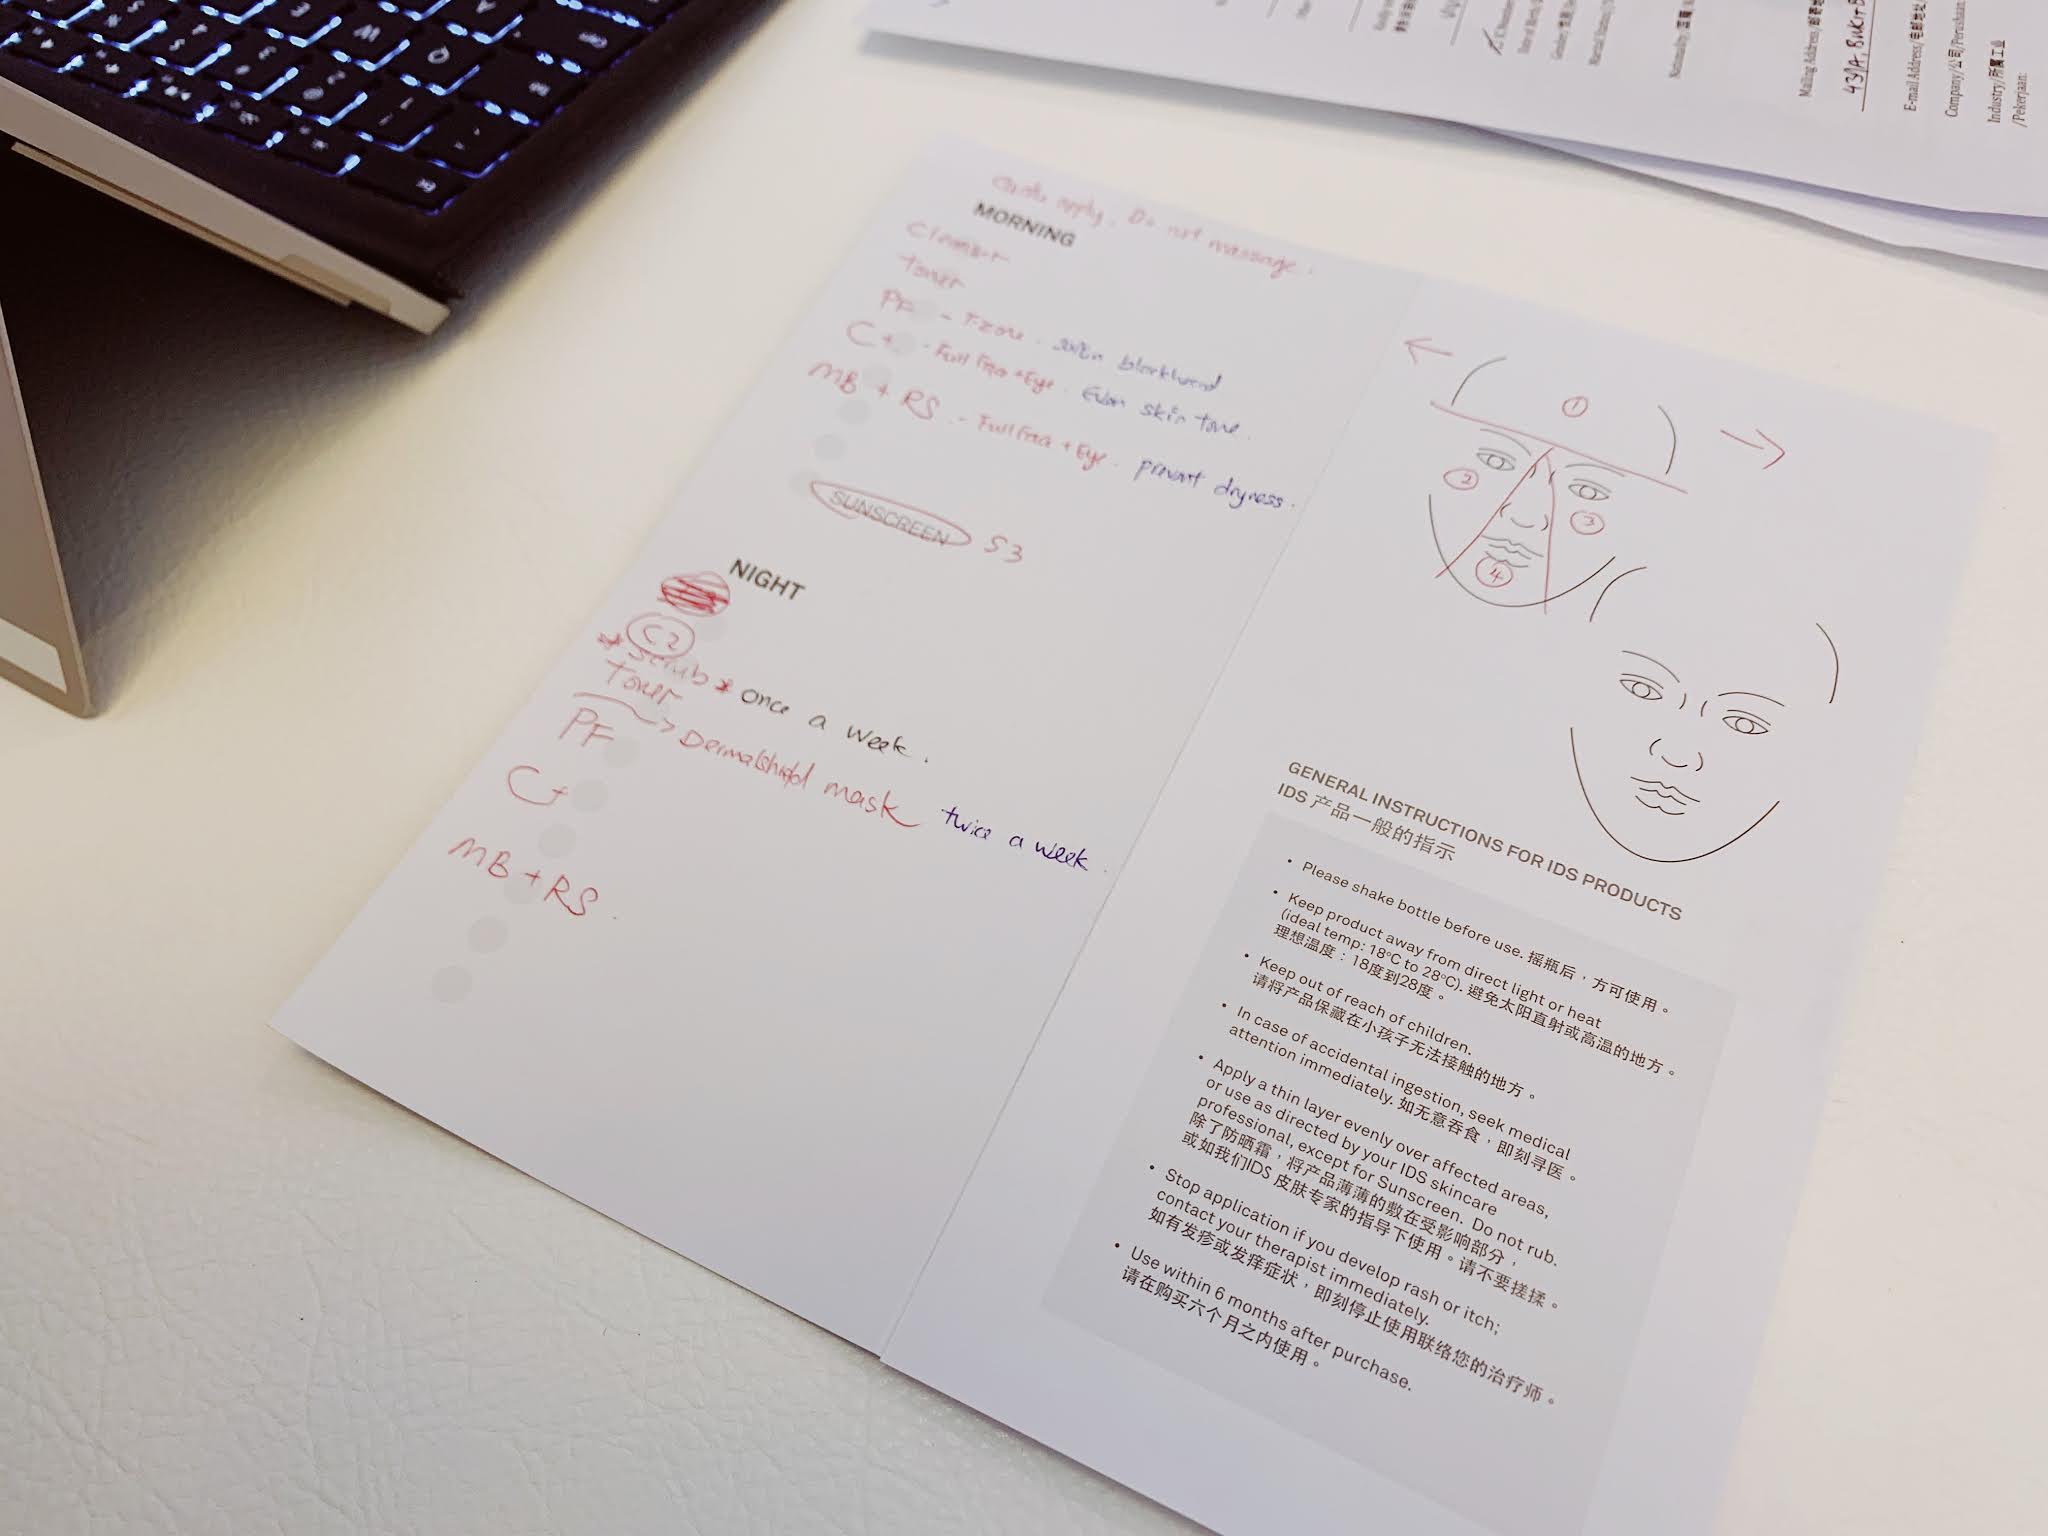 apply. Do not massage.
MORNING
Cleanser
Toner
PF - T-zone. soften blackhead
C+ - Full Face + Eye. Even skin tone.
MB + RS - Full Face + Eye. prevent dryness.
SUNSCREEN S3
NIGHT
C2
* Scrub * once a week.
Toner
Dermashield mask twice a week.
PF
C+
MB + RS.
1
2
3
4
GENERAL INSTRUCTIONS FOR IDS PRODUCTS
IDS 产品一般的指示
• Please shake bottle before use. 摇瓶后，方可使用。
• Keep product away from direct light or heat
(ideal temp: 18°C to 28°C). 避免太阳直射或高温的地方。
理想温度：18度到28度。
• Keep out of reach of children.
请将产品保藏在小孩子无法接触的地方。
• In case of accidental ingestion, seek medical
attention immediately. 如无意吞食，即刻寻医。
• Apply a thin layer evenly over affected areas,
or use as directed by your IDS skincare
professional, except for Sunscreen. Do not rub.
除了防晒霜，将产品薄薄的敷在受影响部分，
或如我们IDS 皮肤专家的指导下使用。请不要搓揉。
• Stop application if you develop rash or itch;
contact your therapist immediately.
如有发疹或发痒症状，即刻停止使用联络您的治疗师。
• Use within 6 months after purchase.
请在购买六个月之内使用。
Mailing Address/邮寄地
E-mail Address/电邮地址/
Company/公司/Perusahaan:
Industry/所属工业
/Pekerjaan: